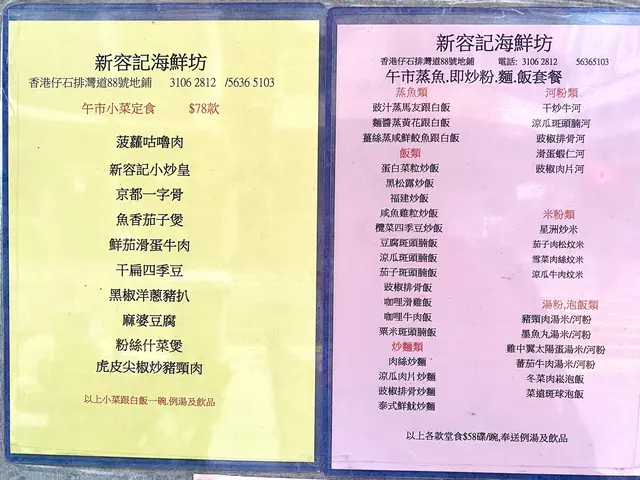 新容記海鮮坊
香港仔石排灣道88號地鋪 3106 2812 /5636 5103
午市小菜定食 $78款
菠蘿咕嚕肉
新容記小炒皇
京都一字骨
魚香茄子煲
鮮茄滑蛋牛肉
干扁四季豆
黑椒洋蔥豬扒
麻婆豆腐
粉絲什菜煲
虎皮尖椒炒豬頸肉
以上小菜跟白飯一碗,例湯及飲品
新容記海鮮坊
香港仔石排灣道88號地鋪 電話: 3106 2812 56365103
午市蒸魚.即炒粉.麵.飯套餐
蒸魚類
豉汁蒸馬友跟白飯
麵醬蒸黃花跟白飯
薑絲蒸咸鮮鮫魚跟白飯
飯類
蛋白菜粒炒飯
黑松露炒飯
福建炒飯
咸魚雞粒炒飯
欖菜四季豆炒飯
豆腐斑頭腩飯
涼瓜斑頭腩飯
茄子斑頭腩飯
豉椒排骨飯
咖哩滑雞飯
咖哩牛肉飯
粟米斑頭腩飯
炒麵類
肉絲炒麵
涼瓜肉片炒麵
豉椒排骨炒麵
泰式鮮魷炒麵
河粉類
干炒牛河
涼瓜斑頭腩河
豉椒排骨河
滑蛋蝦仁河
豉椒肉片河
米粉類
星洲炒米
茄子肉松炆米
雪菜肉絲炆米
涼瓜牛肉炆米
湯粉,泡飯類
豬頸肉湯米/河粉
墨魚丸湯米/河粉
雞中翼太陽蛋湯米/河粉
蕃茄牛肉湯米/河粉
冬菜肉崧泡飯
菜遠斑球泡飯
以上各款堂食$58碟/碗,奉送例湯及飲品